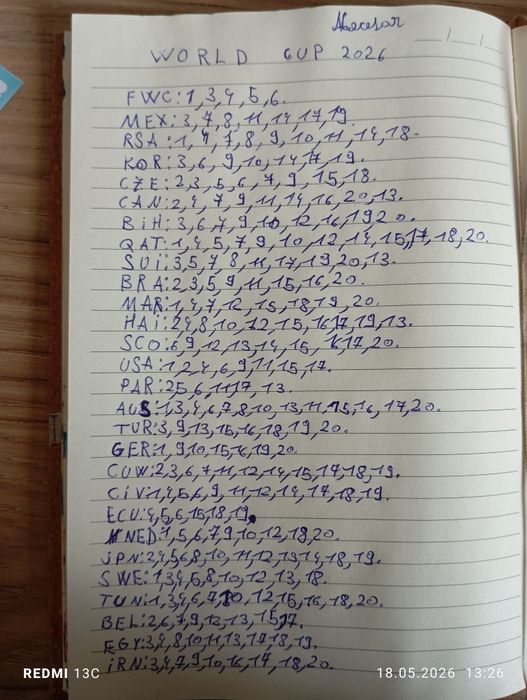 WORLD CUP 2026
FWC: 1, 3, 4, 5, 6.
MEX: 3, 7, 8, 11, 14, 17, 19.
RSA: 1, 4, 7, 8, 9, 10, 11, 14, 18.
KOR: 3, 6, 9, 10, 14, 17, 19.
CZE: 2, 3, 5, 6, 7, 9, 15, 18.
CAN: 2, 4, 7, 9, 11, 14, 16, 20, 13.
BiH: 3, 6, 7, 9, 10, 12, 16, 19 20.
QAT: 1, 4, 5, 7, 9, 10, 12, 14, 15, 17, 18, 20.
SUi: 3, 5, 7, 8, 11, 17, 19, 20, 13.
BRA: 2, 3, 5, 9, 11, 15, 16, 20.
MAR: 1, 4, 7, 12, 15, 18, 19, 20.
HAi: 2, 4, 8, 10, 12, 15, 16, 17, 19, 13.
SCO: 6, 9, 12, 13, 14, 15, 16, 17, 20.
USA: 1, 2, 4, 6, 9, 11, 15, 17.
PAR: 2, 5, 6, 11, 17, 13.
AUS: 1, 3, 4, 6, 7, 8, 10, 13, 11, 15, 16, 17, 20.
TUR: 3, 9, 13, 15, 16, 18, 19, 20.
GER: 1, 9, 10, 15, 16, 19, 20.
CUW: 2, 3, 6, 7, 11, 12, 14, 15, 17, 18, 19.
CiV: 1, 4, 5, 6, 9, 11, 12, 14, 17, 18, 19.
ECU: 4, 5, 6, 15, 18, 19.
NED: 1, 5, 6, 7, 9, 10, 12, 18, 20.
JPN: 2, 4, 5, 6, 8, 10, 11, 12, 13, 14, 18, 19.
SWE: 1, 3, 4, 5, 8, 10, 12, 13, 18.
TUN: 1, 3, 4, 6, 7, 10, 12, 15, 16, 18, 20.
BEL: 2, 6, 7, 9, 12, 13, 15, 17.
EGY: 3, 4, 8, 10, 11, 13, 17, 18, 19.
iRN: 3, 4, 7, 9, 10, 16, 17, 18, 20.
REDMI 13C
18.05.2026 13:26